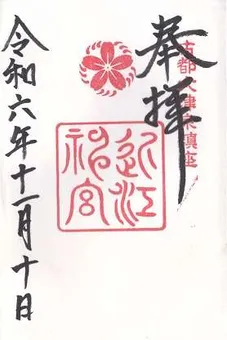 奉拝
古都大津京鎮座
近江神宮
令和六年十一月十日